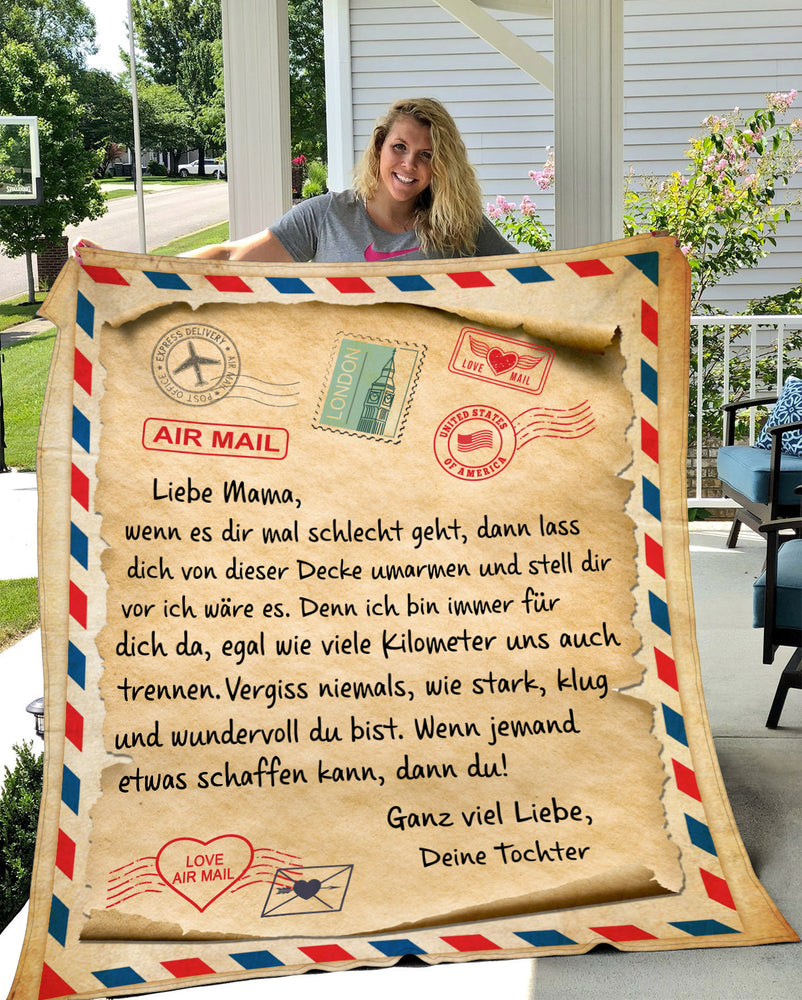 EXPRESS DELIVERY
AIR MAIL
POST OFFICE
LONDON
LOVE MAIL
AIR MAIL
UNITED STATES
OF AMERICA
Liebe Mama,
wenn es dir mal schlecht geht, dann lass
dich von dieser Decke umarmen und stell dir
vor ich wäre es. Denn ich bin immer für
dich da, egal wie viele Kilometer uns auch
trennen. Vergiss niemals, wie stark, klug
und wundervoll du bist. Wenn jemand
etwas schaffen kann, dann du!
Ganz viel Liebe,
Deine Tochter
LOVE
AIR MAIL